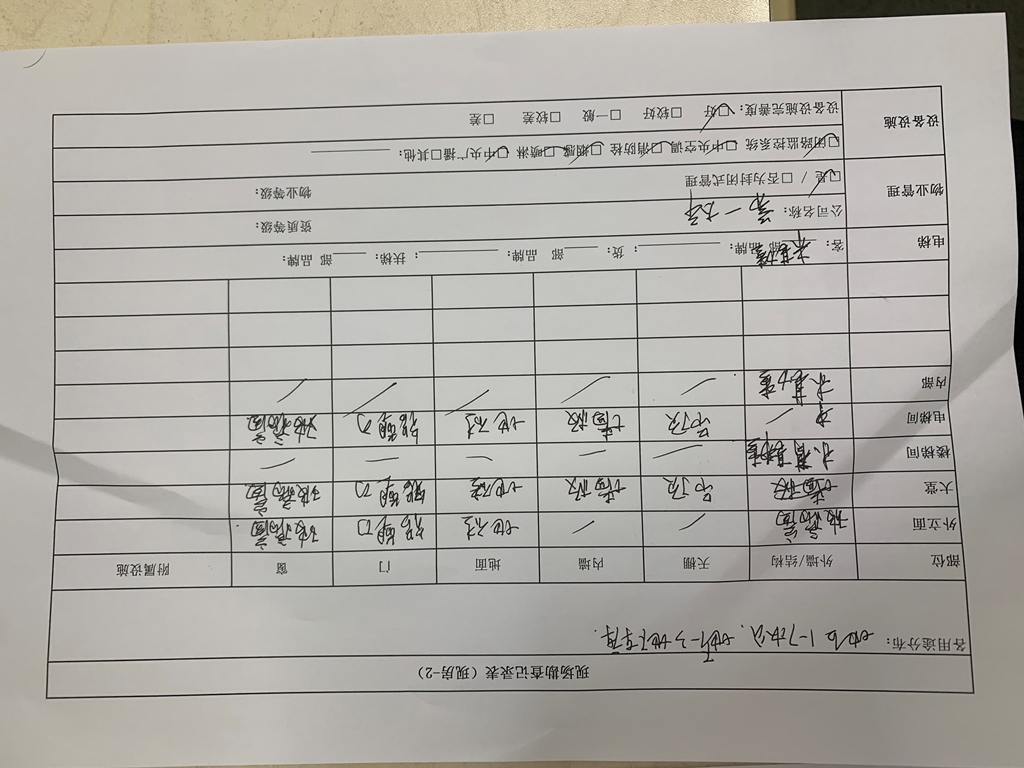 现场勘查记录表（现房-2）
各用途分布：地上1-7办公、地下-3地下车库.
部位 外墙/结构 天棚 内墙 地面 门 窗 附属设施
外立面 玻璃窗 / / 地砖 铝门 玻璃窗
大堂 墙砖 吊顶 墙砖 地砖 玻璃窗
楼梯间 未查勘 / / / / /
电梯间 / 吊顶 墙砖 地砖 玻璃窗
内部 未查勘 / / / / /
电梯 客：____部 品牌：______；货：____部 品牌：______；扶梯：____部 品牌：
物业管理 公司名称：第一太平 资质等级：
☑是 / □否为封闭式管理 物业等级：
设备设施 ☑闭路监控系统 ☑中央空调 ☑消防栓 ☑烟感 ☑喷淋 ☑中央广播 □其他：______
设备设施完善度：☑好 □较好 □一般 □较差 □差